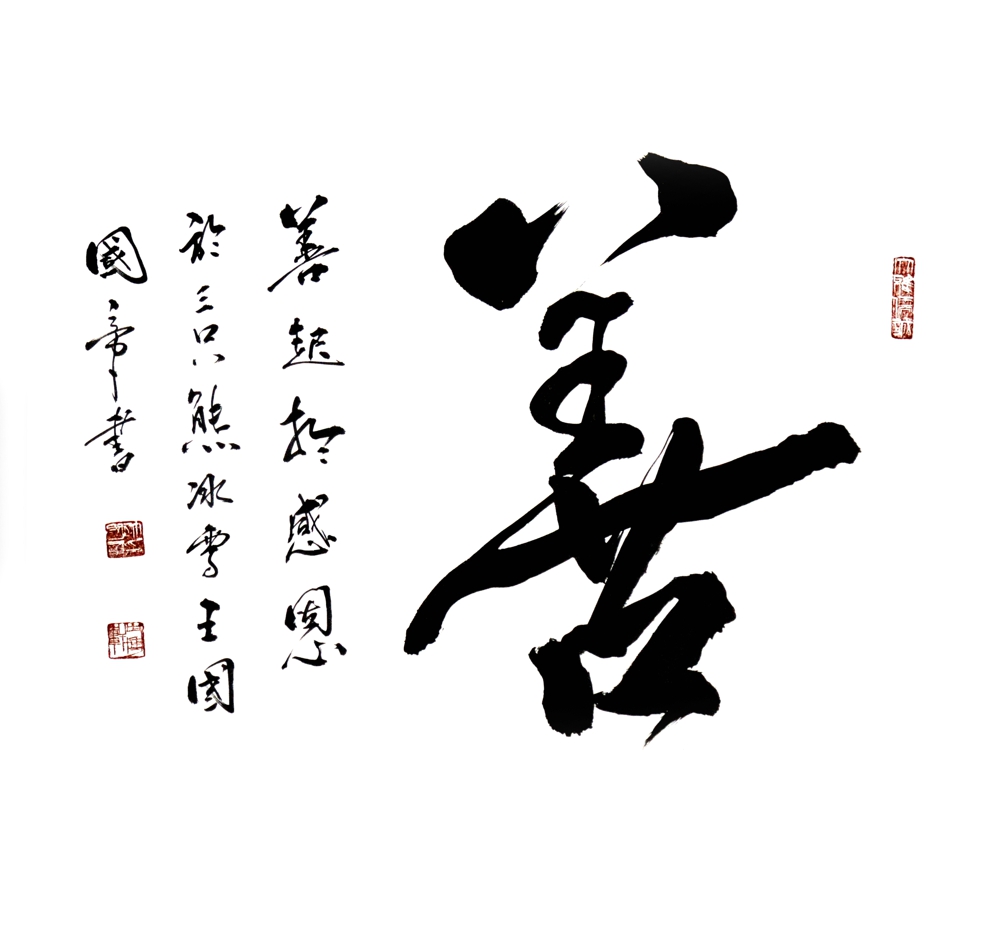 善
善起於感恩
於三只熊冰雪王國
國帝書